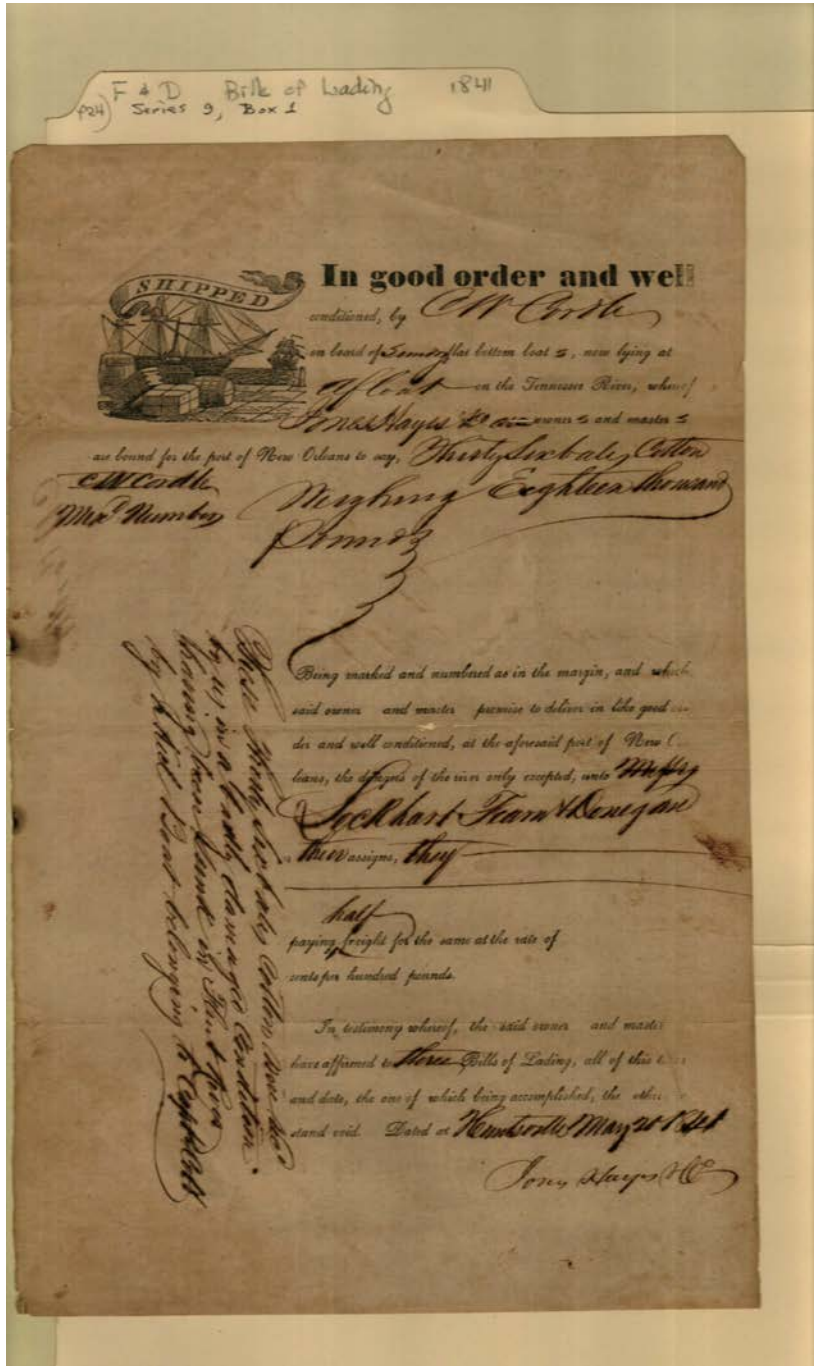 F & D Bills of Lading 1841
F24) Series 9, Box 1
SHIPPED
In good order and well
conditioned, by C W Cordle
on board of Sundry flat bottom boat s, now lying at
afloat on the Tennessee River, whereof
Jones Hayes & Co are owner s and master s
are bound for the port of New Orleans to say, Thirty Six bales Cotton
C W Cordle
Weighing Eighteen thousand
Mixd Number
Pounds
Being marked and numbered as in the margin, and which
said owner and master promise to deliver in like good or
der and well conditioned, at the aforesaid port of New
leans, the dangers of the river only excepted, unto Messrs
Lockhart Fearn & Donegan
their assigns, they
half
paying freight for the same at the rate of
cents per hundred pounds.
In testimony whereof, the said owner and master
have affirmed to three Bills of Lading, all of this
and date, the one of which being accomplished, the others
stand void. Dated at Huntsville May 20 1841
Jones Hayes & Co
These thirty Six bales Cotton were
by us in a badly damaged Condition
having been Sunk in Flint River
by a Boat belonging to Capt